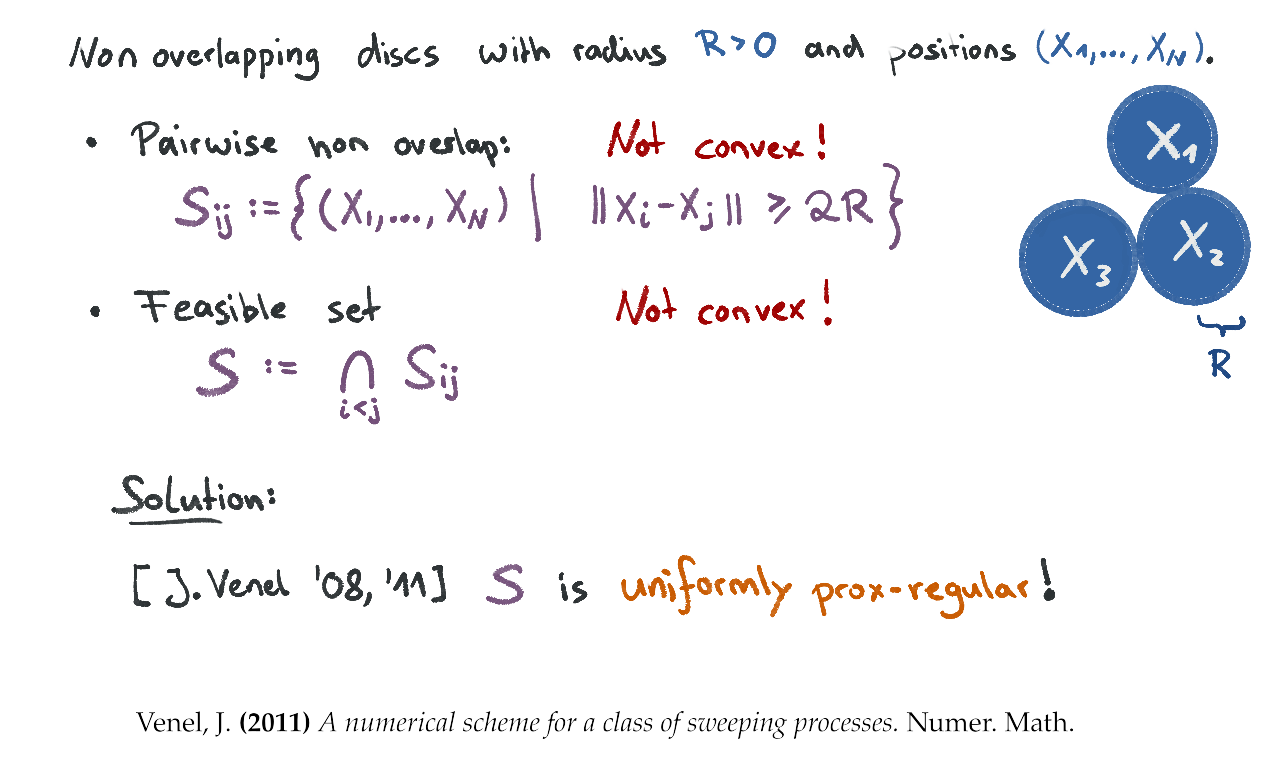 Non overlapping discs with radius R>0 and positions (X₁,...,X_N).
• Pairwise non overlap: Not convex!
S_ij := {(X₁,...,X_N) | ||X_i-X_j|| ⩾ 2R}
X₁
X₃ X₂
• Feasible set Not convex!
R
S := ⋂_{i<j} S_ij
Solution:
[J. Venel '08, '11] S is uniformly prox-regular!
Venel, J. (2011) A numerical scheme for a class of sweeping processes. Numer. Math.